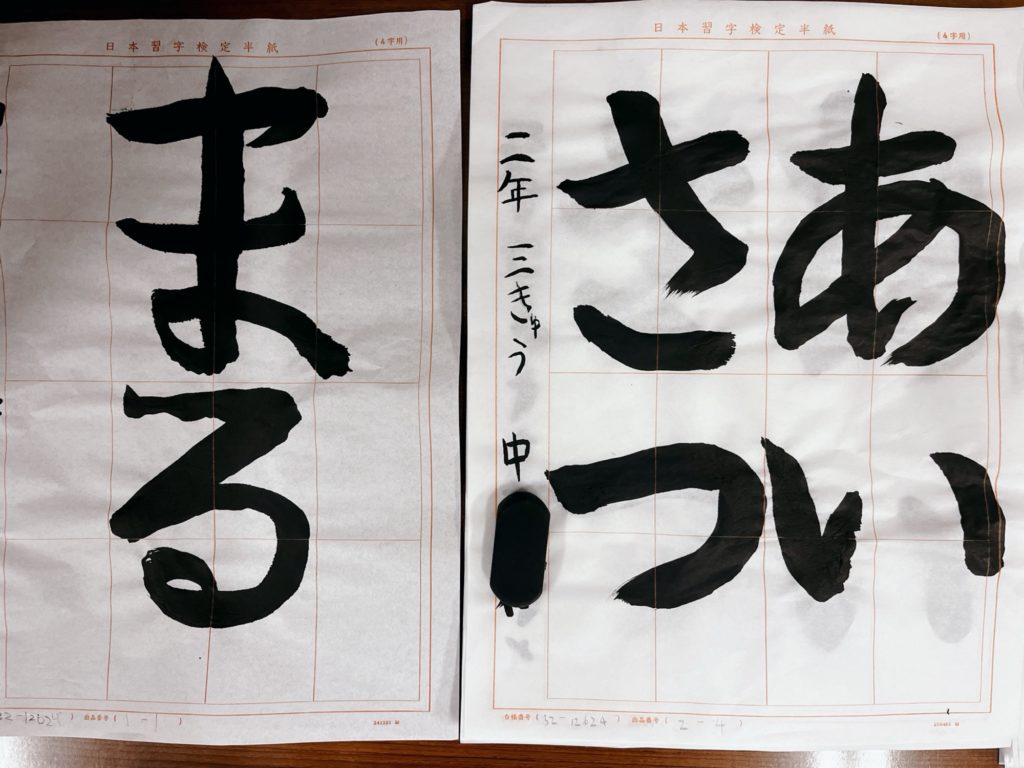 日本習字検定半紙 (4字用)
あい
さつ
二年 三きゅう 中
(32-12624) 出品番号 (2-4)
日本習字検定半紙 (4字用)
まる
32-12624) 出品番号 (1-1)